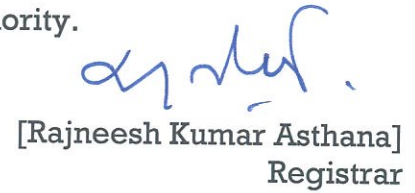 ority.
[Rajneesh Kumar Asthana]
Registrar